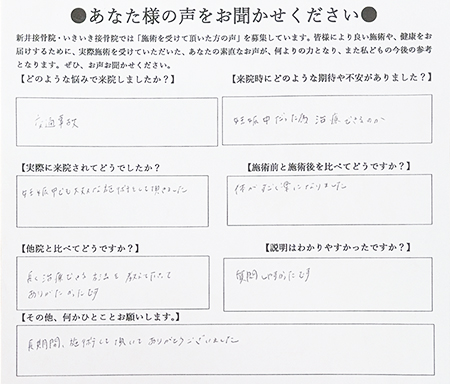 ●あなた様の声をお聞かせください●
新井接骨院・いきいき接骨院では「施術を受けて頂いた方の声」を募集しています。皆様により良い施術や、健康をお
届けするために、実際施術を受けていただいた、あなたの素直なお声が、何よりの力となり、また私どもの今後の参考
となります。ぜひ、お声お聞かせください。
【どのような悩みで来院しましたか?】
交通事故
【来院時にどのような期待や不安がありました?】
妊娠中だった為 治療できるのか
【実際に来院されてどうでしたか?
妊娠中でも大丈夫な施術をして頂きました
【施術前と施術後を比べてどうですか?】
体がすごく楽になりました
【他院と比べてどうですか?】
長く治療できる方法を教えてくださって
ありがたかったです
【説明はわかりやすかったですか?】
質問しやすかったです
【その他、何かひとことお願いします。】
長期間、施術して頂いてありがとうございました